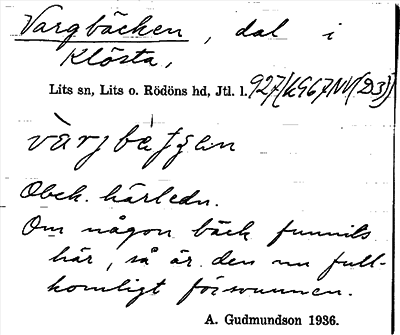 Vargbäcken, dal i
Klösta,
Lits sn, Lits o. Rödöns hd, Jtl. l.
Obek. härledn.
Om någon bäck funnits
här, så är den nu full-
komligt försvunnen.
A. Gudmundson 1936.